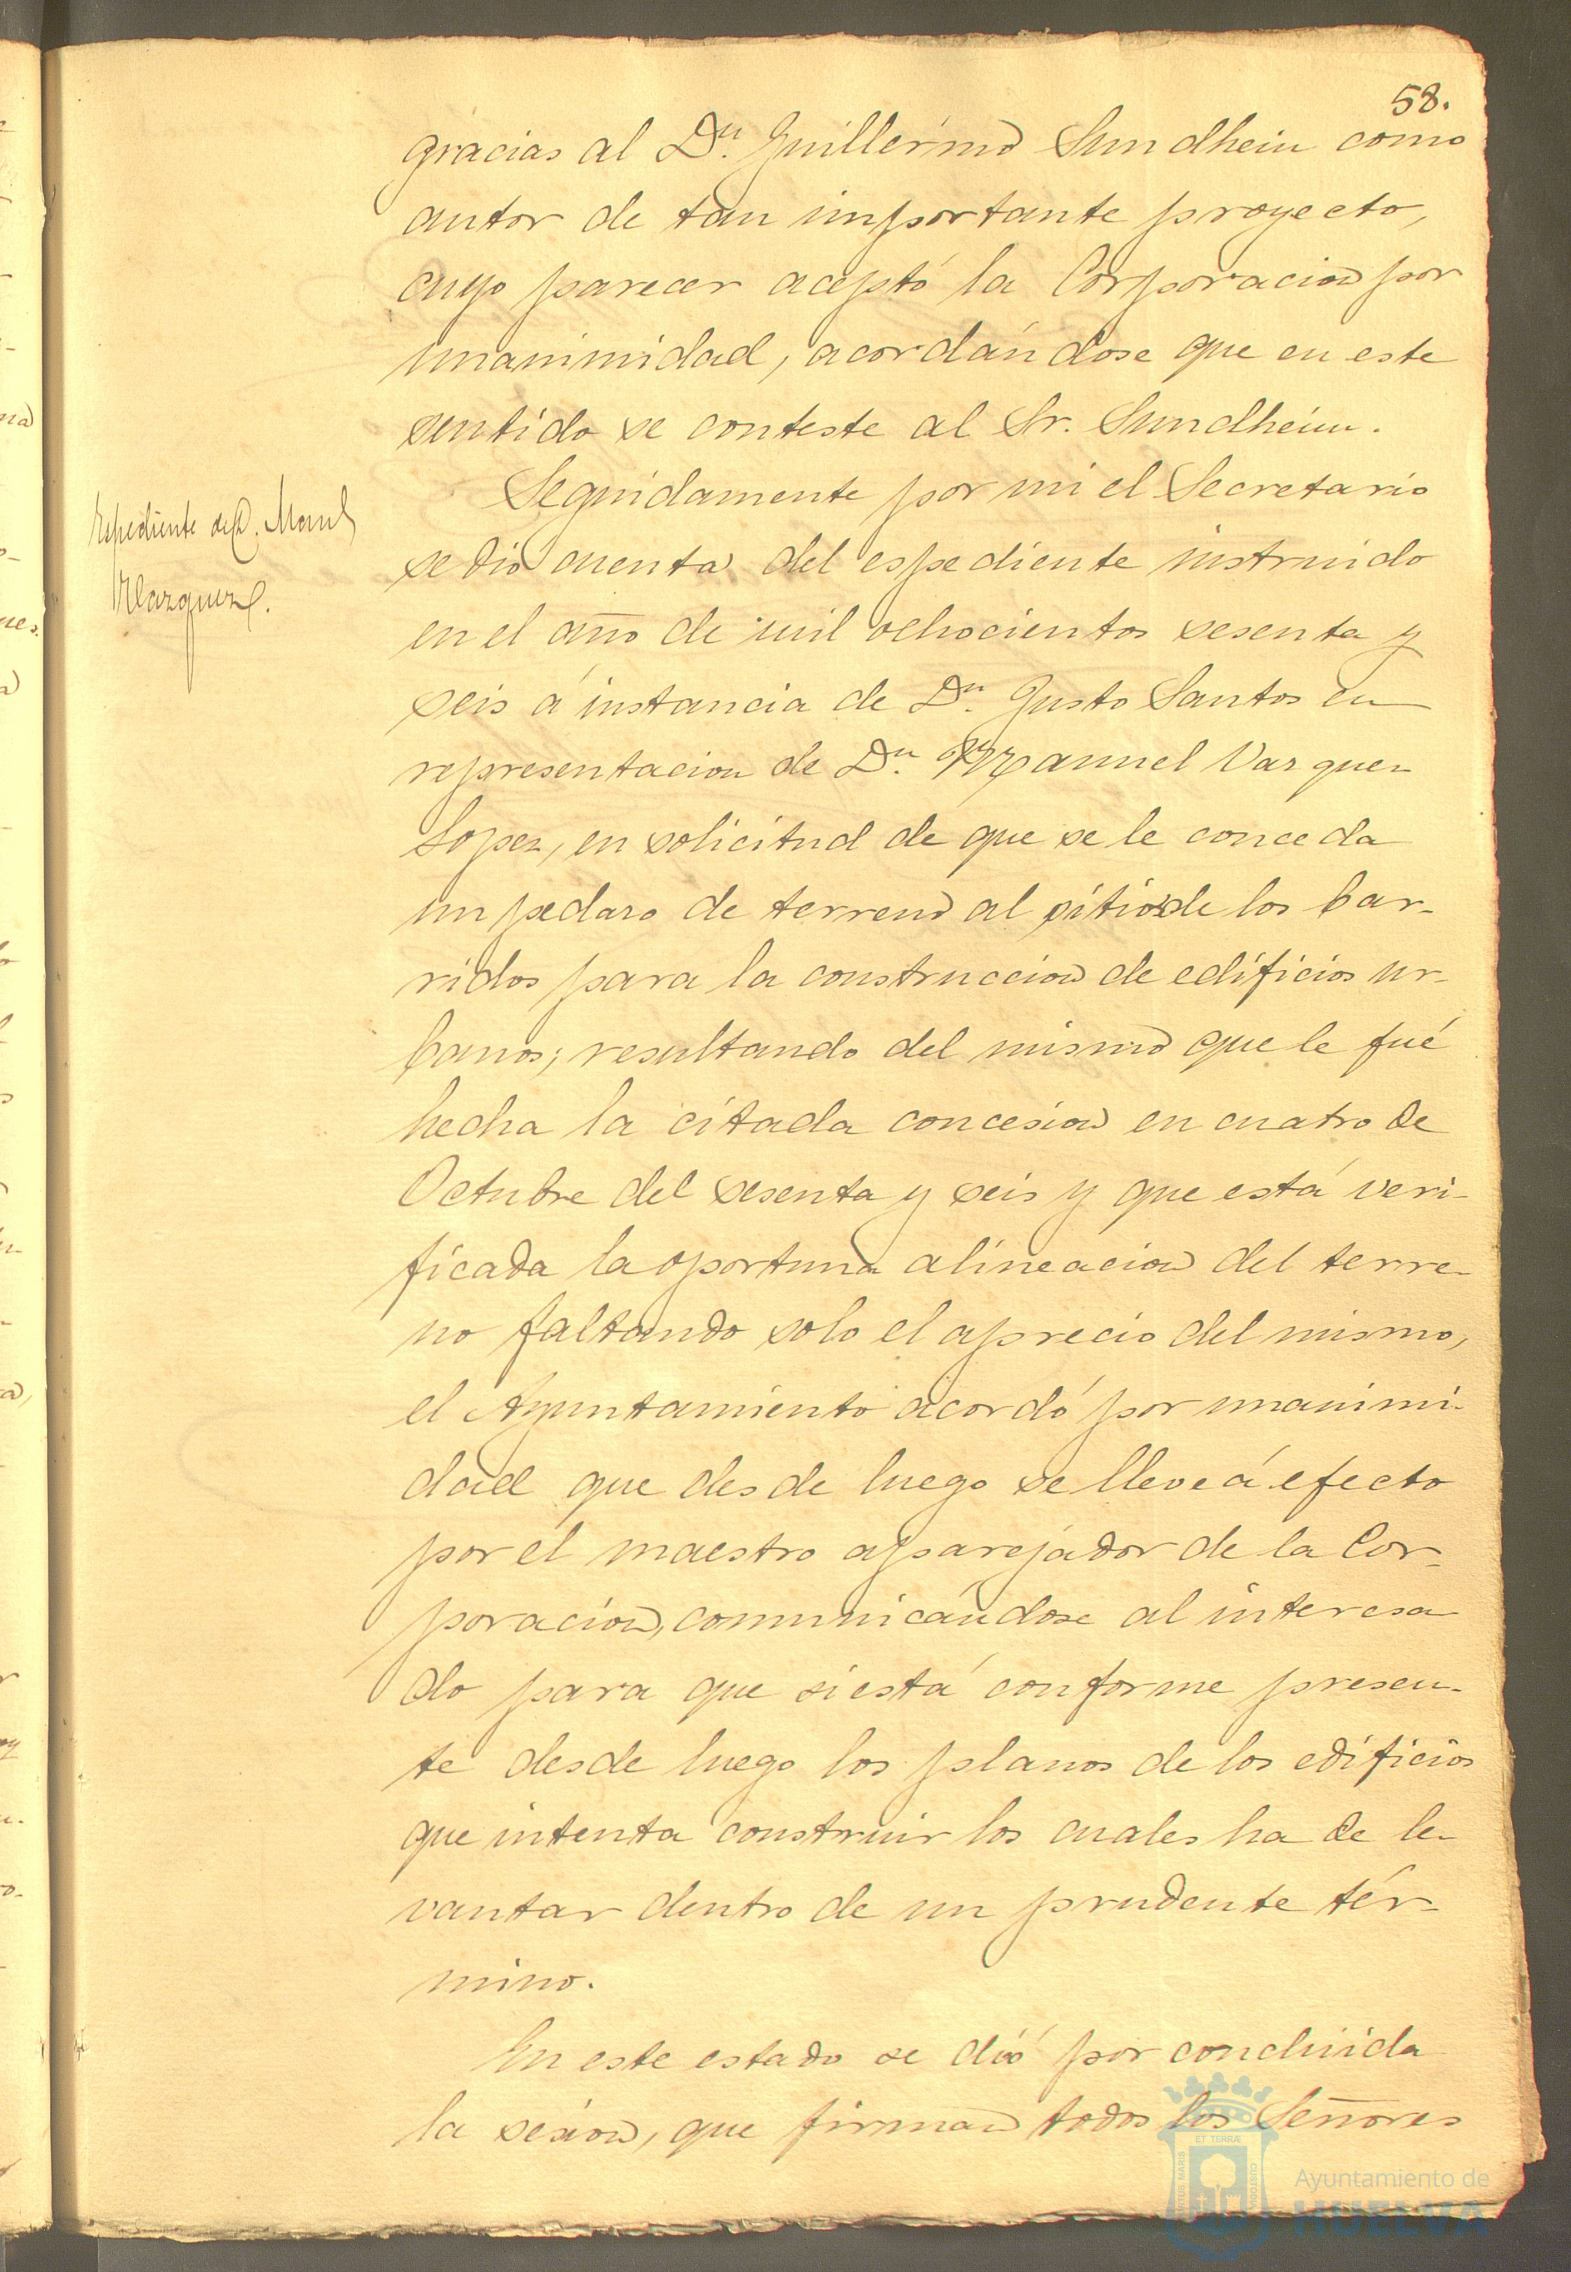 58.
gracias al Dn. Guillermo Sundheim como
autor de tan importante proyecto,
cuyo parecer aceptó la Corporacion por
unanimidad, acordándose que en este
sentido se conteste al Sr. Sundheim.
Seguidamente por mi el Secretario
se dió cuenta del espediente instruido
en el año de mil ochocientos sesenta y
seis á instancia de Dn. Justo Santos en
representacion de Dn. Manuel Vazquez
Lopez, en solicitud de que se le conceda
un pedazo de terreno al sitio de los bar-
ridos para la construccion de edificios ur-
banos; resultando del mismo que le fué
hecha la citada concesion en cuatro de
Octubre del sesenta y seis y que está veri-
ficada la oportuna alineacion del terre-
no faltando solo el aprecio del mismo,
el Ayuntamiento acordó por unanimi-
dad que desde luego se lleve á efecto
por el maestro aparejador de la Cor-
poracion, comunicándose al interesa-
do para que si está conforme presen-
te desde luego los planos de los edificios
que intenta construir los cuales ha de le-
vantar dentro de un prudente tér-
mino.
En este estado se dió por concluida
la sesion, que firman todos los Señores
Espediente de D. Manl
Vazquez
Ayuntamiento de
HUELVA